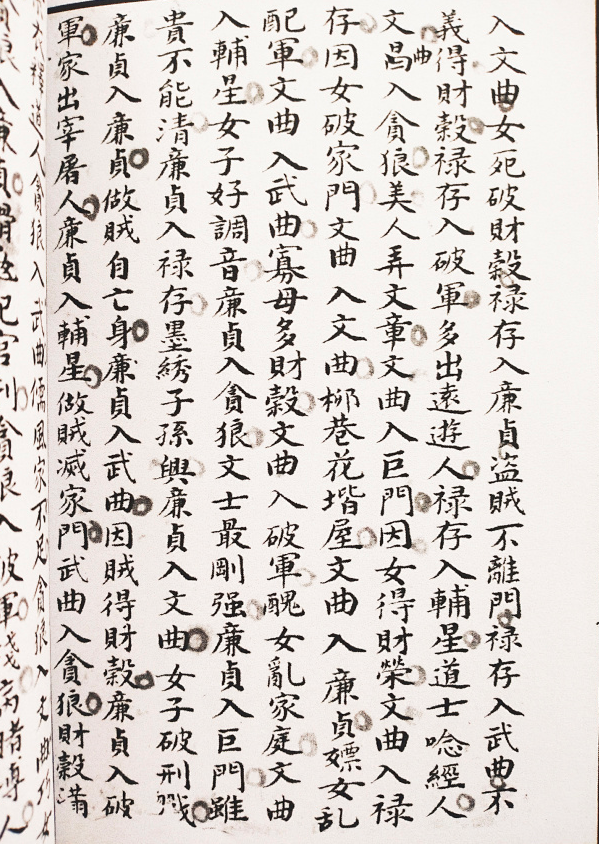 入文曲女死破財穀禄存入廉貞盗賊不離門禄存入武曲不
義得財穀禄存入破軍多出遠遊人禄存入輔星道士唸經人
文曲昌入貪狼美人弄文章文曲入巨門因女得財榮文曲入禄
存因女破家門文曲入文曲柳巷花堦屋文曲入廉貞嫖女乱
配軍文曲入武曲寡母多財穀文曲入破軍醜女亂家庭文曲
入輔星女子好調音廉貞入貪狼文士最剛强廉貞入巨門雖
貴不能清廉貞入禄存墨綉子孫興廉貞入文曲女子破刑
廉貞入廉貞做賊自亡身廉貞入武曲因賊得財穀廉貞入破
軍家出宰屠人廉貞入輔星做賊滅家門武曲入貪狼財穀滿
道人貪狼入武曲儒風家不足貪狼入文曲
狼入廉貞 官刑貪狼入破軍 病賭博人